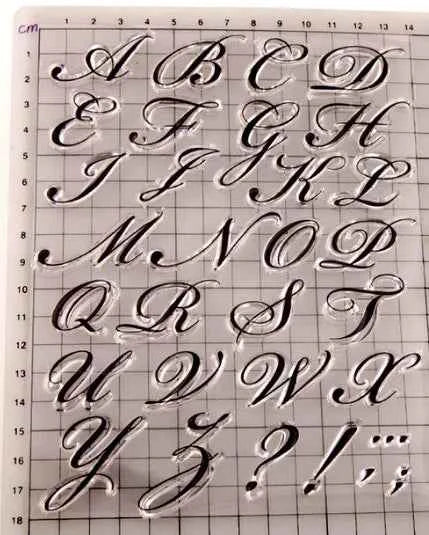 1 2 3 4 5 6 7 8 9 10 11 12 13 14
cm
1
2
3
4
5
6
7
8
9
10
11
12
13
14
15
16
17
18
A B C D
E F G H
I J K L
M N O P
Q R S T
U V W X
Y Z ? !